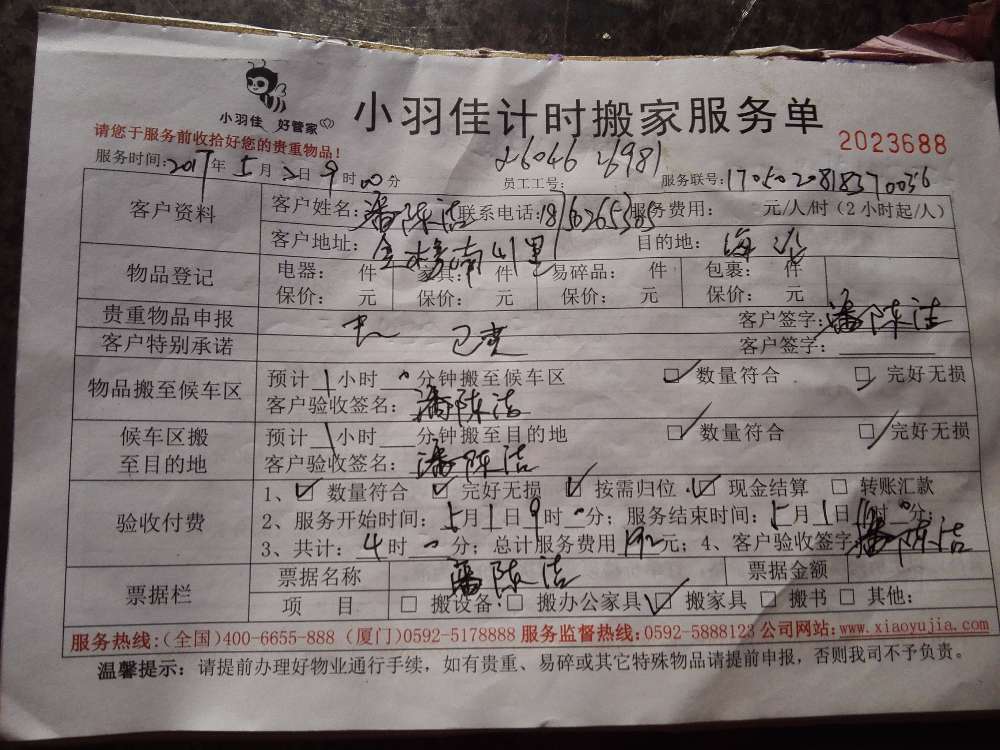 小羽佳 好管家
小羽佳计时搬家服务单
请您于服务前收拾好您的贵重物品!
2023688
26046 26981
服务时间:2017年5月2日9时00分 员工工号: 服务联号:1705020818370036
客户资料 客户姓名:潘陈洁 联系电话:18 服务费用: 元/人/时(2小时起/人)
客户地址: 南山里 目的地: 海沧
物品登记 电器: 件 家具: 件 易碎品: 件 包裹: 件
保价: 元 保价: 元 保价: 元 保价: 元
贵重物品申报 无 客户签字:潘陈洁
客户特别承诺 客户签字:
物品搬至候车区 预计1小时0分钟搬至候车区 数量符合 完好无损
客户验收签名:潘陈洁
候车区搬至目的地 预计1小时 分钟搬至目的地 数量符合 完好无损
客户验收签名:潘陈洁
验收付费 1、数量符合 完好无损 按需归位 现金结算 转账汇款
2、服务开始时间:5月1日9时0分;服务结束时间:5月1日 时0分;
3、共计:4时0分;总计服务费用192元;4、客户验收签字:潘陈洁
票据栏 票据名称 潘陈洁 票据金额
项 目 搬设备 搬办公家具 搬家具 搬书 其他:
服务热线:(全国)400-6655-888 (厦门)0592-5178888 服务监督热线:0592-5888123 公司网站:www.xiaoyujia.com
温馨提示:请提前办理好物业通行手续,如有贵重、易碎或其它特殊物品请提前申报,否则我司不予负责。